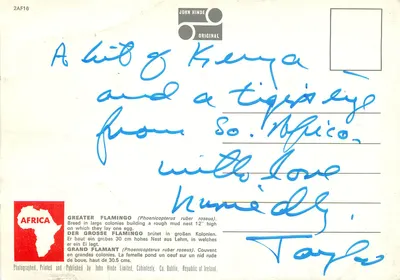 2AF16
JOHN HINDE
ORIGINAL
A bit of Kenya
and a tiger's eye
from So. Africa,
with love
hurriedly,
Taylor
AFRICA
GREATER FLAMINGO (Phoenicopterus ruber roseus).
Breed in large colonies building a rough mud nest 12" high
on which they lay one egg.
DER GROSSE FLAMINGO brütet in großen Kolonien.
Er baut ein grobes 30 cm hohes Nest aus Lehm, in welches
er ein Ei legt.
GRAND FLAMANT (Phoenicopterus ruber roseus). Couvent
en grandes colonies. La femelle pond un oeuf sur un nid rude
de boue haut de 30 cms.
Photographed, Printed and Published by John Hinde Limited, Cabinteely, Co. Dublin, Republic of Ireland.